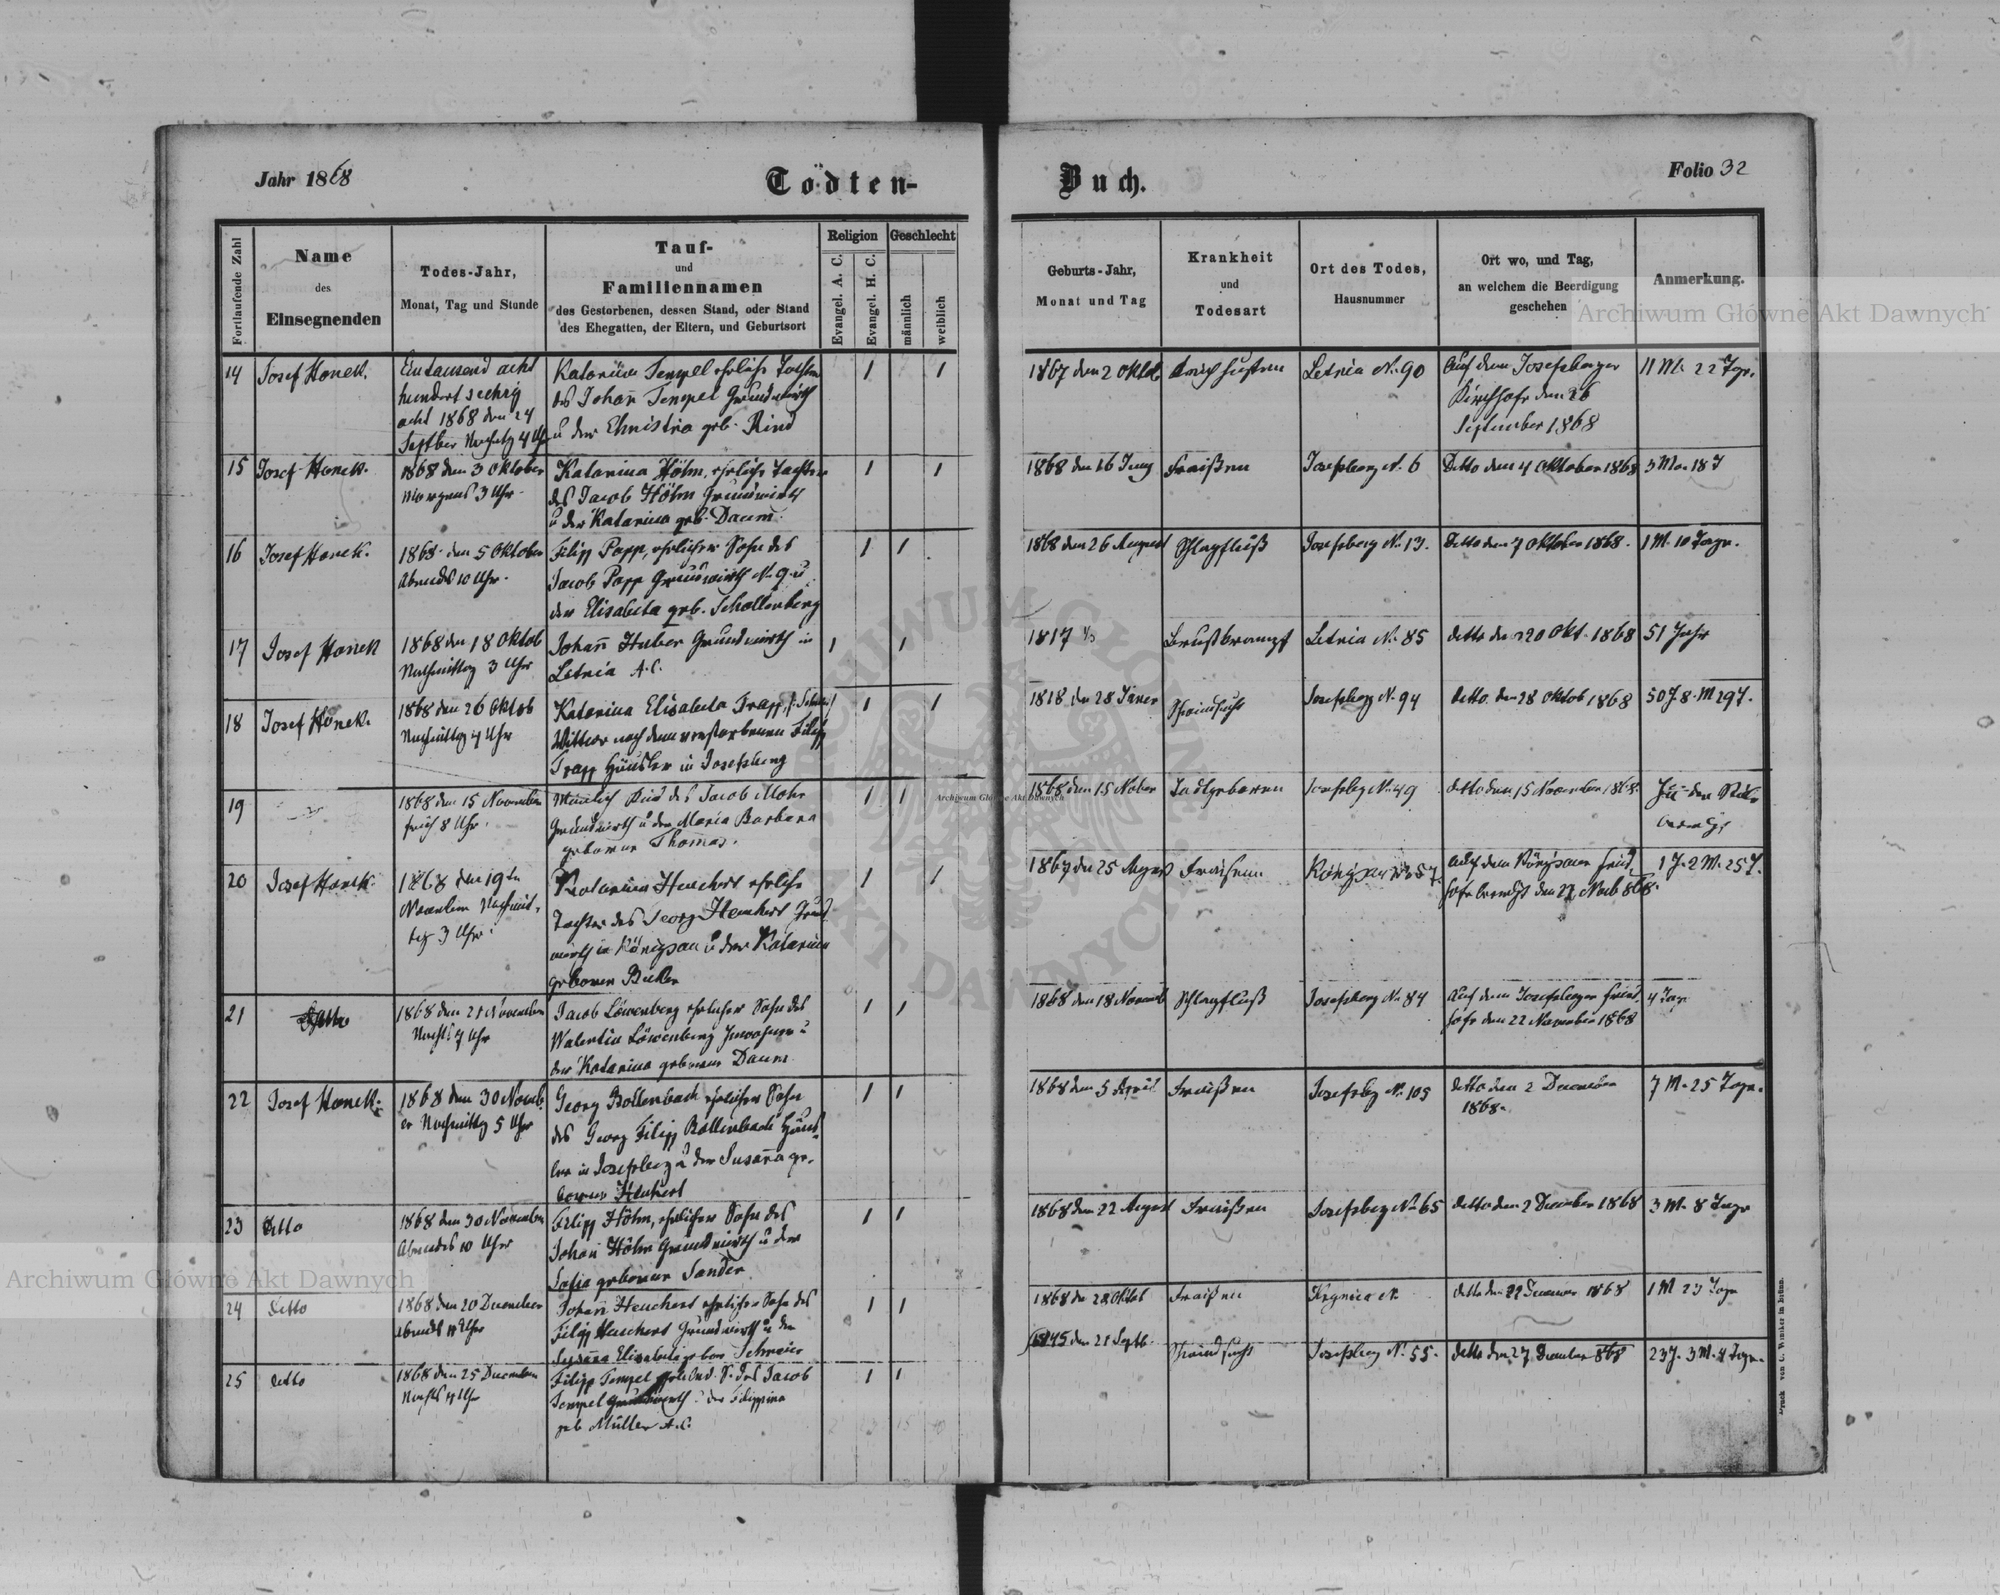 Jahr 1868
Tödten-
Buch.
Folio 32
Fortlaufende Zahl
Name
des
Einsegnenden
Todes-Jahr,
Monat, Tag und Stunde
Tauf-
und
Familiennamen
des Gestorbenen, dessen Stand, oder Stand
des Ehegatten, der Eltern, und Geburtsort
Religion
Evangel. A. C.
Evangel. H. C.
Geschlecht
männlich
weiblich
Geburts-Jahr,
Monat und Tag
Krankheit
und
Todesart
Ort des Todes,
Hausnummer
Ort wo, und Tag,
an welchem die Beerdigung
geschehen
Anmerkung.
14
Josef Honek.
Eintausend acht
hundert sechzig
acht 1868 den 24
Septber. Nachtg 4 Uhr
Katarina Tempel ehrliche Tochter
des Johañ Tempel Grundwirth
u der Christina geb. Rind
1
1
1867 den 2 Oktob
Letnia No. 90
Auf dem Josefsberger
Kirchhofe den 26
September 1868
11 M. 22 Tge.
15
Josef Honek.
1868 den 3 Oktober
Morgens 3 Uhr.
Katarina Höhm, ehrliche Tochter
des Jacob Höhm Grundwirth
u der Katarina geb. Daum.
1
1
1868 den 16 Juny
Fraißen
Josefsberg N. 6
Detto den 4 Oktober 1868
3 Mo. 18 T
16
Josef Honek.
1868 den 5 Oktober
Abends 10 Uhr.
Filipp Popp, ehrlicher Sohn des
Jacob Popp Grundwirth No. 9 u
der Elisabeta geb. Schollenberg
1
1
1868 den 26 August
Schlagfluß
Josefsberg No. 13.
Detto den 7 Oktober 1868.
1 M. 10 Tage.
17
Josef Honek
1868 den 18 Oktob
Nachmittag 3 Uhr
Johañ Huber Grundwirth in
Letnia A.C.
1
1
1817
Brustkrampf
Letnia No. 85
detto den 20 Okt. 1868
51 Jahr
18
Josef Honek.
1868 den 26 Oktob
Nachmittag 4 Uhr
Katarina Elisabeta Trapp
Wittwe nach dem verstorbenen Filipp
Trapp Häusler in Josefsberg
1
1
1818 den 28 Jäner
Schwindsucht
Josefsberg N. 94
detto den 28 Oktob 1868
50 J. 8. M 29 T.
19
1868 den 15 November
früh 8 Uhr.
Männlich Kind des Jacob Mohr
Grundwirth u der Maria Barbara
geborene Thomas.
1
1
1868 den 15 Nober
Todtgeboren
Josefsbg No. 49
detto den 15 November 1868.
20
Josef Honek.
1868 den 19ten
November Nachmit-
tag 3 Uhr.
Katarina Heuchert ehrliche
Tochter des Georg Heuchert Grund
wirth in Königsau u der Katarina
geborene Bicker
1
1
1867 den 25 August
Fraisen
Königsau No 57.
auf dem Königsauer Fried
hofe beerdigt den 22 Novb 868.
1 J. 2 M. 25 T.
21
1868 den 21 November
Nachts 7 Uhr
Jacob Löwenberg ehrlicher Sohn des
Walentin Löwenberg Inwohner u
der Katarina geborene Daum
1
1
1868 den 18 Novemb
Schlagfluß
Josefsberg No. 84
Auf dem Josefsberger Fried
hofe den 22 November 1868
4 Tage
22
Josef Honek.
1868 den 30 Novemb.
er Nachmittag 5 Uhr
Georg Bollenbach ehrlicher Sohn
des Georg Filipp Bollenbach Häus
ler in Josefsberg u der Susaña ge-
borene Heuchert
1
1
1868 den 5 April
Fraißen
Josefsbg No. 105
detto den 2 December
1868.
7 M. 25 Tage.
23
detto
1868 den 30 November
Abends 10 Uhr
Filipp Höhm, ehrlicher Sohn des
Johañ Höhm Grundwirth u der
Sofia geborene Sander
1
1
1868 den 22 August
Fraißen
Josefsberg No 65
detto den 2 December 1868
3 M. 8 Tage
24
detto
1868 den 20 December
Abends 11 Uhr
Johañ Heuchert ehrlicher Sohn des
Filipp Heuchert Grundwirth u der
Susaña Elisabeta geborn Schmaier
1
1
1868 den 28 Oktob
Fraißen
Kygnica N.
detto den 22 December 1868
1 M 23 Tage
25
detto
1868 den 25 December
Nachts 4 Uhr
Filipp Tempel S. des Jacob
Tempel Grundwirth u der Filippina
geb Müller A.C.
1
1
1845 den 21 Septb.
Schwindsucht
Josefsberg No. 55.
detto den 27 December 868
23 J. 3 M. 4 Tage.
Druck von C. Winiker in Brünn.
Archiwum Główne Akt Dawnych
Archiwum Główne Akt Dawnych
Archiwum Główne Akt Dawnych
ARCHIWUM GŁÓWNE AKT DAWNYCH